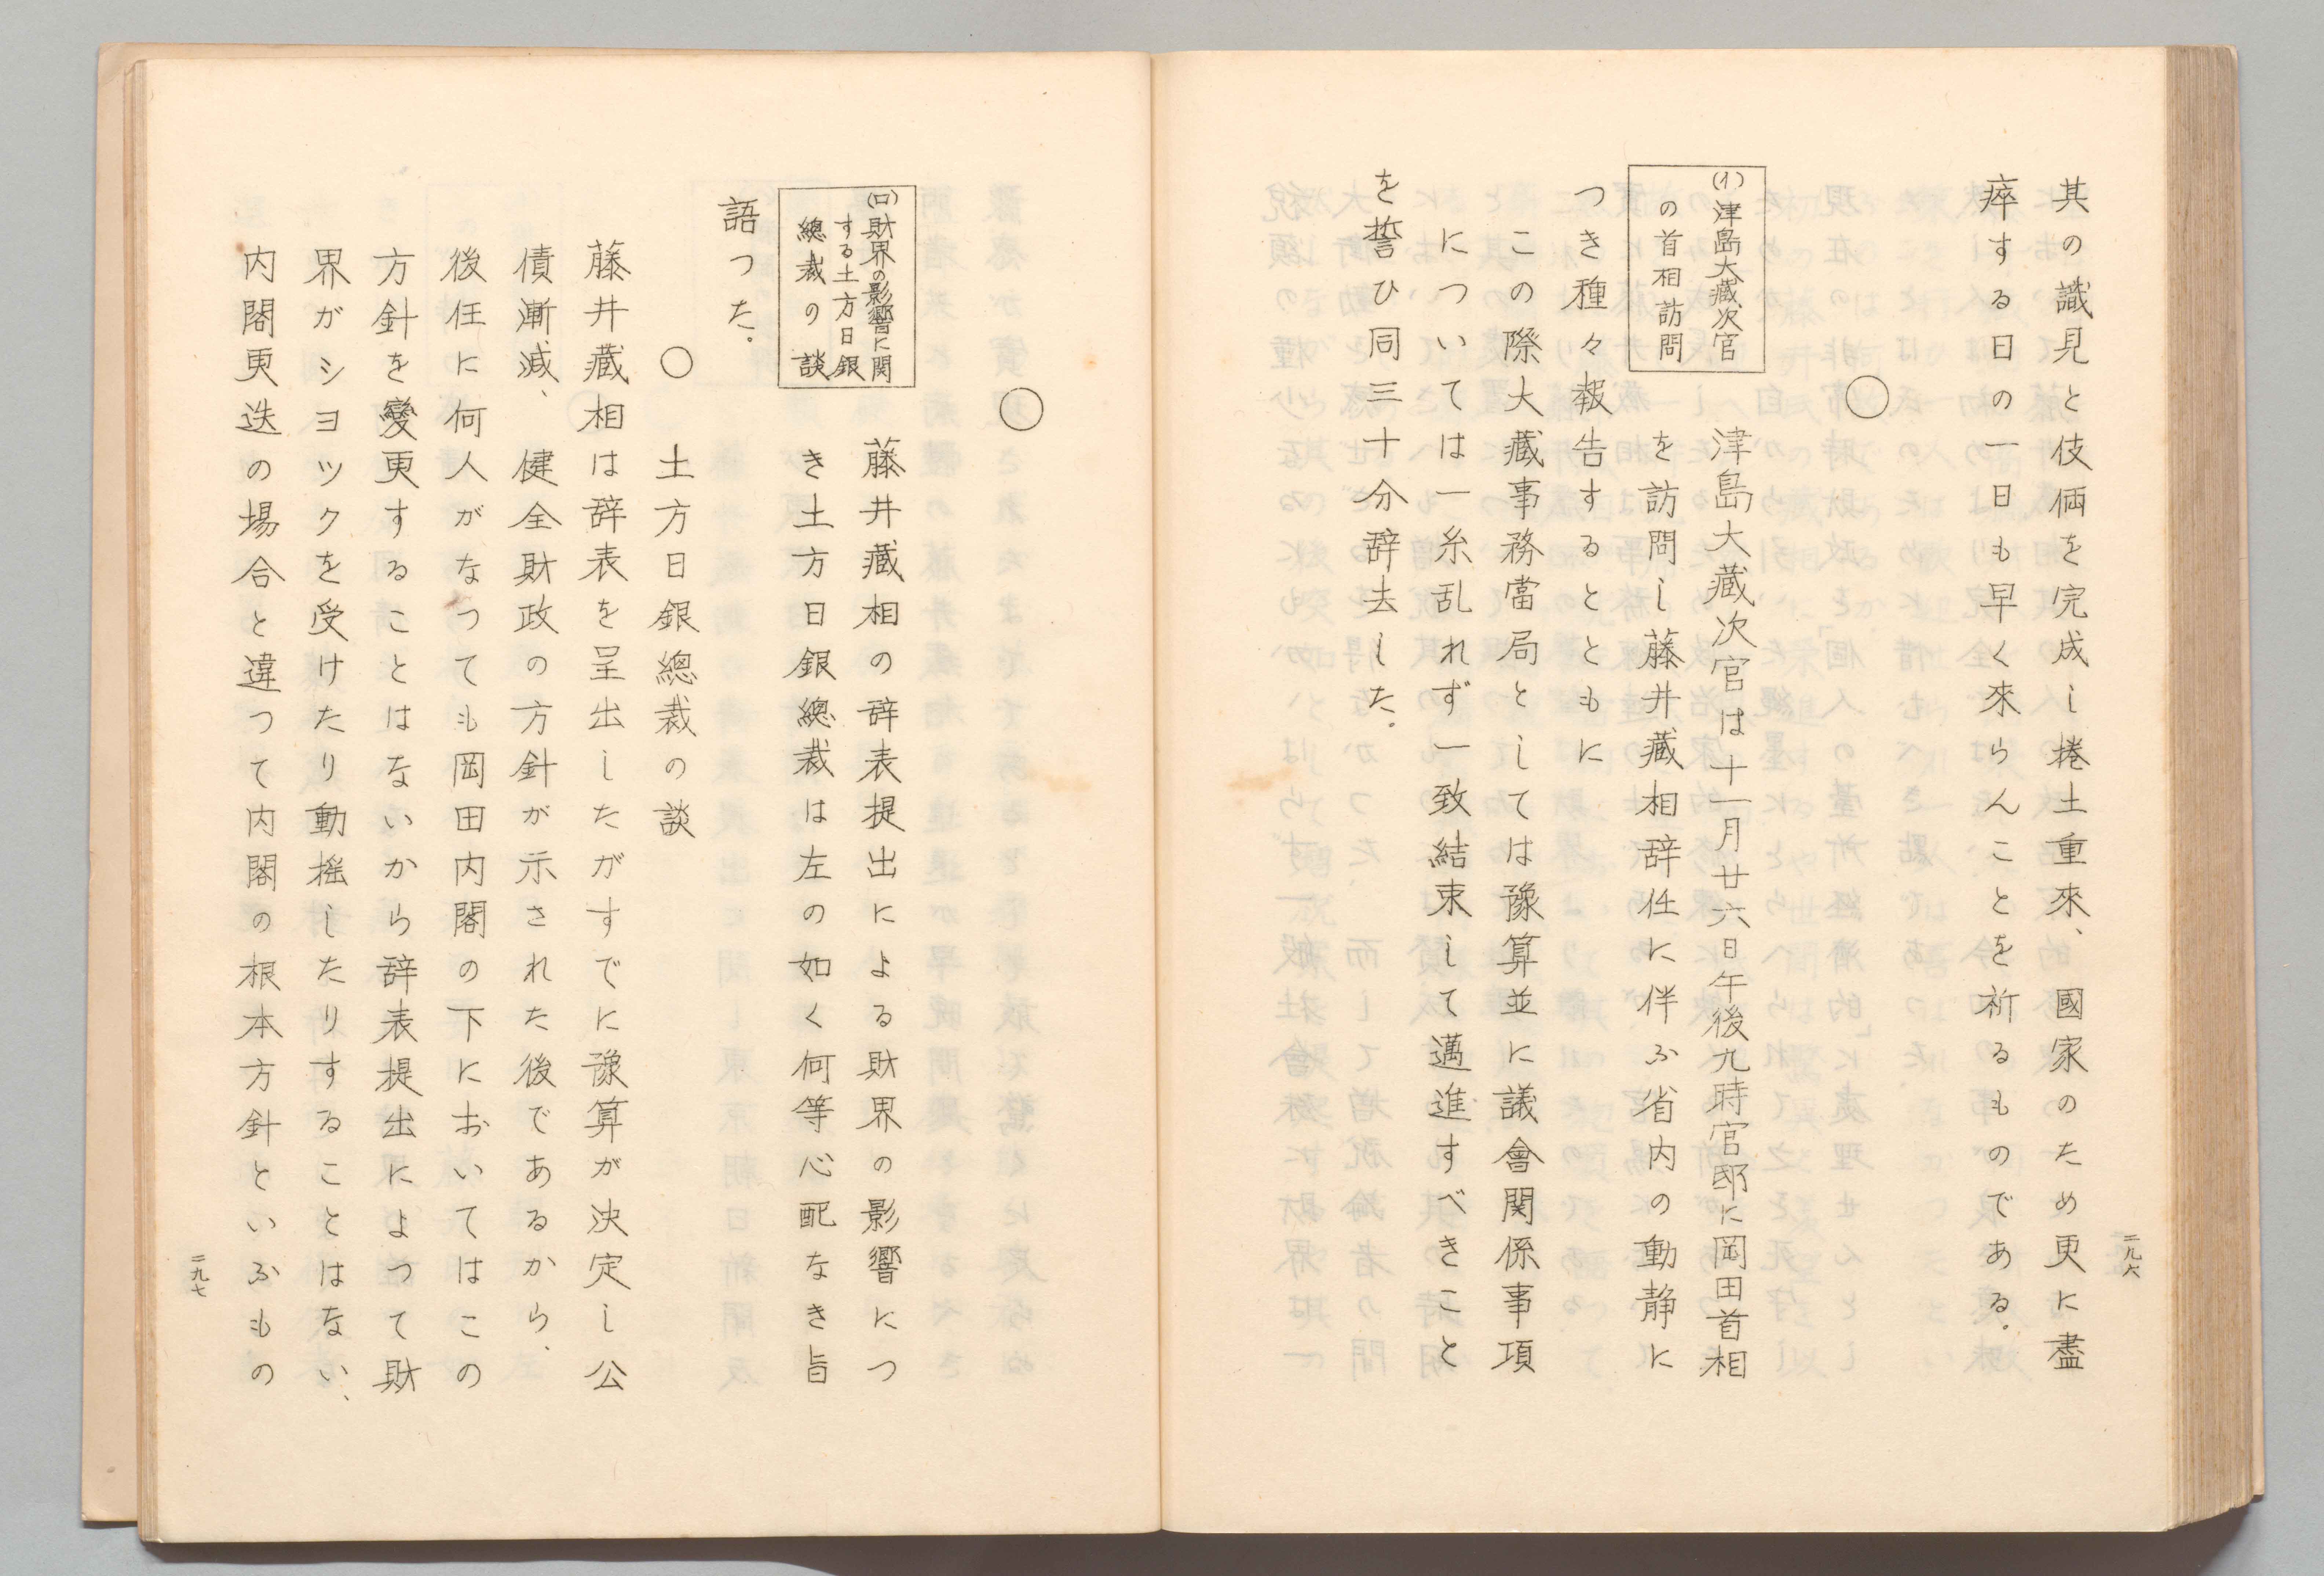 其の識見と伎倆を完成し捲土重來、國家のため更に盡
瘁する日の一日も早く來らんことを祈るものである。
○
(イ)津島大藏次官
の首相訪問
津島大藏次官は十一月廿六日午後九時官邸に岡田首相
を訪問し藤井藏相辞任に伴ふ省内の動静に
つき種々報告するとともに
この際大藏事務當局としては豫算並に議會関係事項
については一糸乱れず一致結束して邁進すべきこと
を誓ひ同三十分辞去した。
二九六
○
(ロ)財界の影響に関
する土方日銀
總裁の談
藤井藏相の辞表提出による財界の影響につ
き土方日銀總裁は左の如く何等心配なき旨
語つた。
○　土方日銀總裁の談
藤井藏相は辞表を呈出したがすでに豫算が決定し公
債漸減、健全財政の方針が示された後であるから、
後任に何人がなつても岡田内閣の下においてはこの
方針を變更することはないから辞表提出によつて財
界がシヨツクを受けたり動揺したりすることはない、
内閣更迭の場合と違つて内閣の根本方針といふもの
二九七